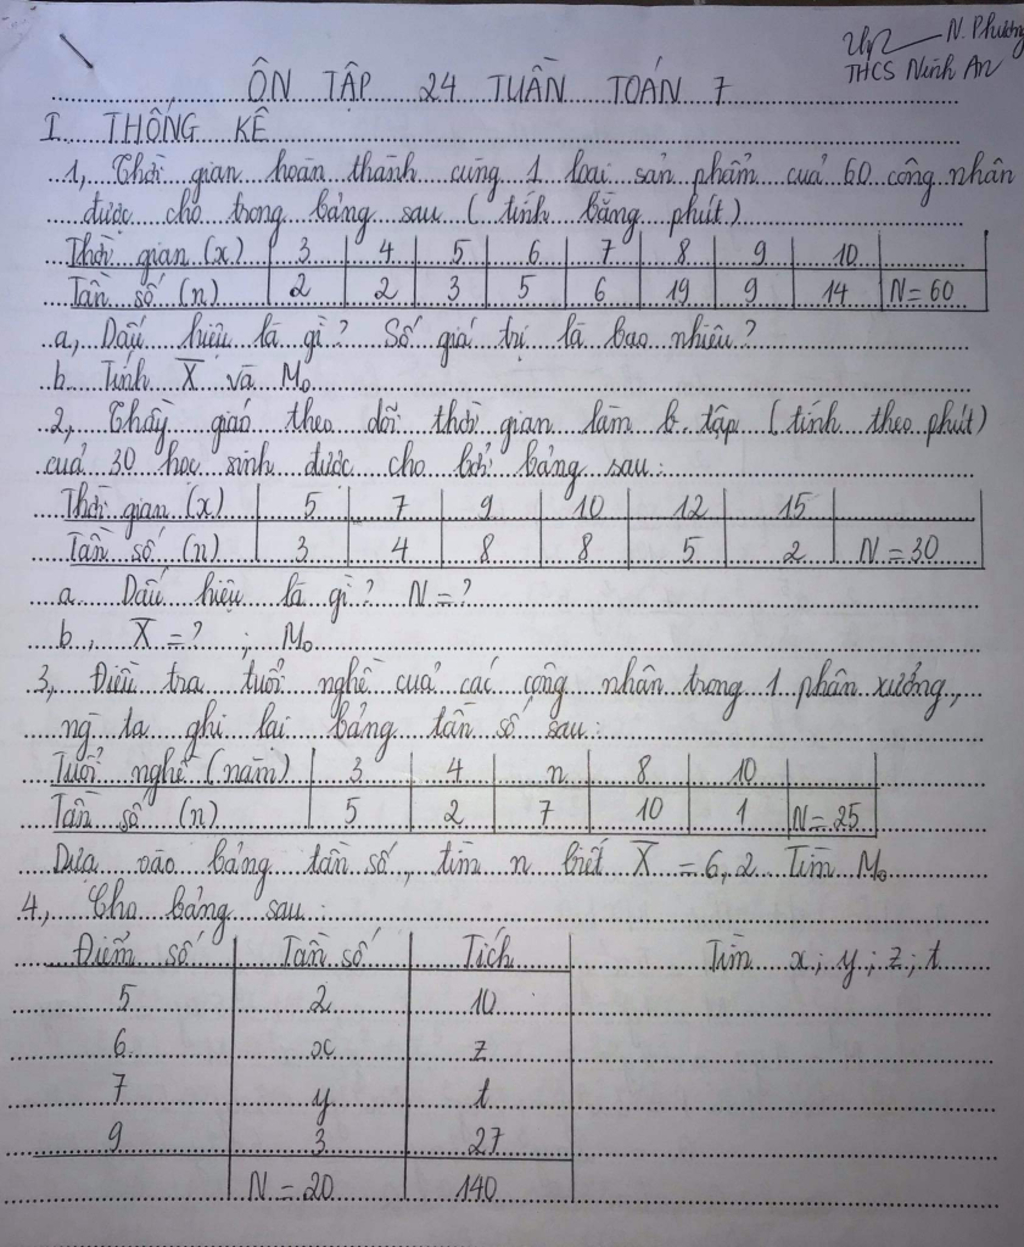 N. Phương
THCS Ninh An
ÔN TẬP 24 TUẦN TOÁN 7
I. THỐNG KÊ
1, Thời gian hoàn thành cùng 1 loại sản phẩm của 60 công nhân
được cho trong bảng sau (tính bằng phút)
Thời gian (x) 3 4 5 6 7 8 9 10
Tần số (n) 2 2 3 5 6 19 9 14 N=60
a, Dấu hiệu là gì? Số giá trị là bao nhiêu?
b. Tính X̅ và M₀
2, Thầy giáo theo dõi thời gian làm b. tập (tính theo phút)
của 30 học sinh được cho bởi bảng sau:
Thời gian (x) 5 7 9 10 12 15
Tần số (n) 3 4 8 8 5 2 N=30
a. Dấu hiệu là gì? N=?
b, X̅=? ; M₀
3, Điều tra tuổi nghề của các công nhân trong 1 phân xưởng,
ng ta ghi lại bảng tần số sau:
Tuổi nghề (năm) 3 4 n 8 10
Tần số (n) 5 2 7 10 1 N=25
Dựa vào bảng tần số, tìm n biết X̅=6,2 Tìm M₀
4, Cho bảng sau:
Điểm số Tần số Tích Tìm x; y; z; t
5 2 10
6 x z
7 y t
9 3 27
N=20 140